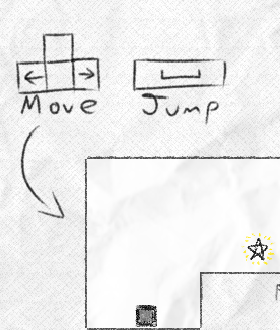 Move
Jump